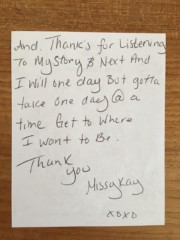 And. Thanks for Listening
To My Story & Next And
I will one day But gotta
take one day @ a
time Get to Where
I want to Be.
Thank
you
Missy Kay
XOXO